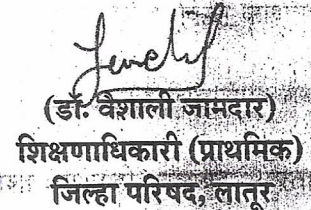 (डॉ. वैशाली जामदार)
शिक्षणाधिकारी (प्राथमिक)
जिल्हा परिषद, लातूर